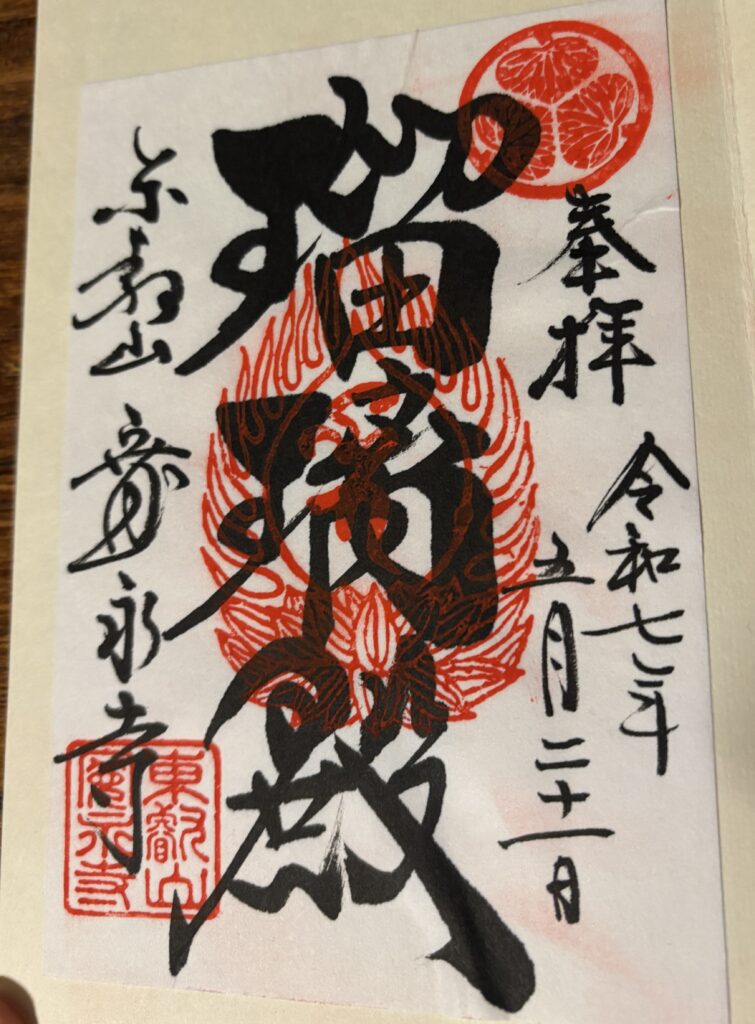 奉拝
令和七年
五月二十一日
瑠璃殿
東叡山 寛永寺
東叡山
寛永寺